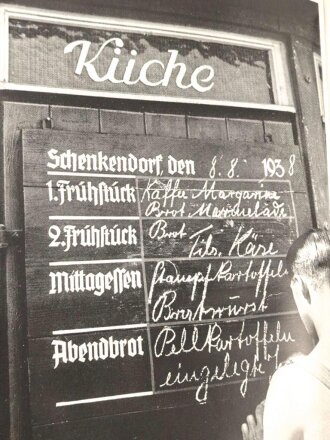 Küche
Schenkendorf, den 8. 8. 1938
1. Frühstück Kaffee Margarine
Brot Marmelade
2. Frühstück Brot
Tils. Käse
Mittagessen Stampfkartoffeln
Bratwurst
Abendbrot Pellkartoffeln
eingelegte